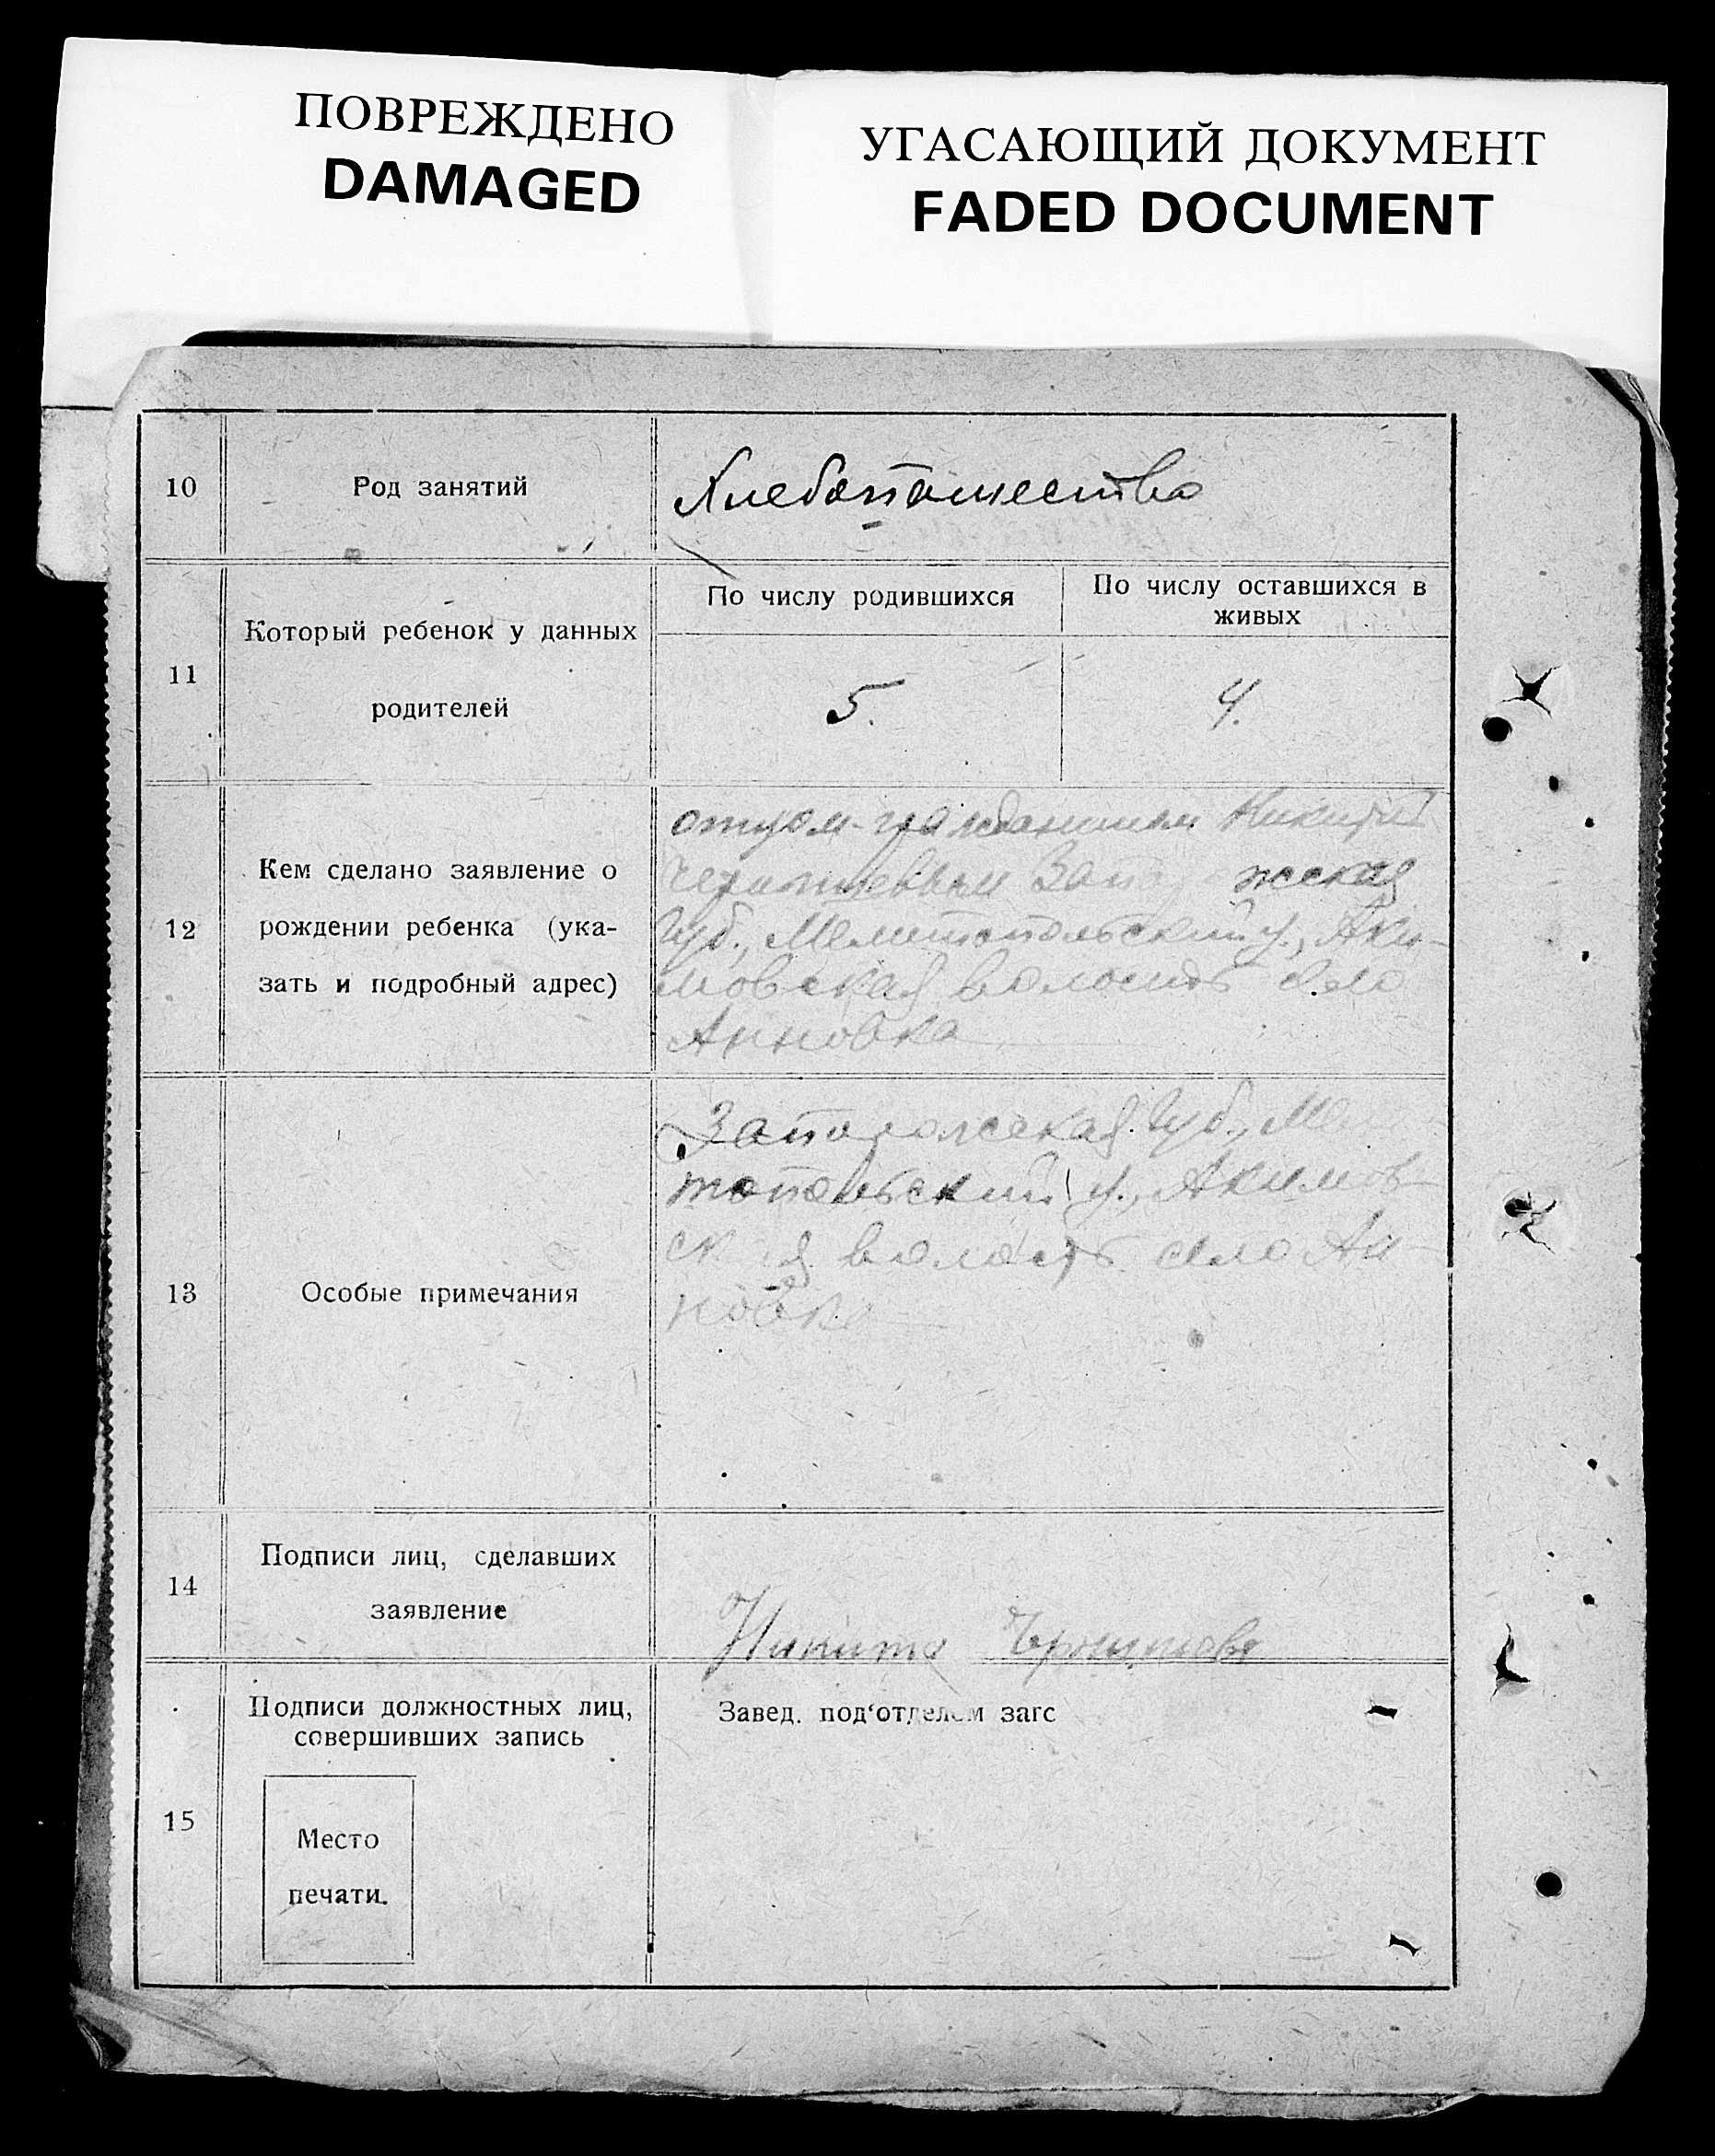 ПОВРЕЖДЕНО
DAMAGED
УГАСАЮЩИЙ ДОКУМЕНТ
FADED DOCUMENT
10
Род занятий
Хлебопашество
11
Который ребенок у данных
родителей
По числу родившихся
По числу оставшихся в
живых
5.
4.
12
Кем сделано заявление о
рождении ребенка (ука-
зать и подробный адрес)
отцом-гражданином
жская
Губ., Мелитопольский у., Аки-
мовская волость село
Анновка
13
Особые примечания
Запорожская Губ., Ме
топольский у., Акимов-
ск я волость село Ан-
новка
14
Подписи лиц, сделавших
заявление
Никита
15
Подписи должностных лиц,
совершивших запись
Место
печати.
Завед. под'отделом загс